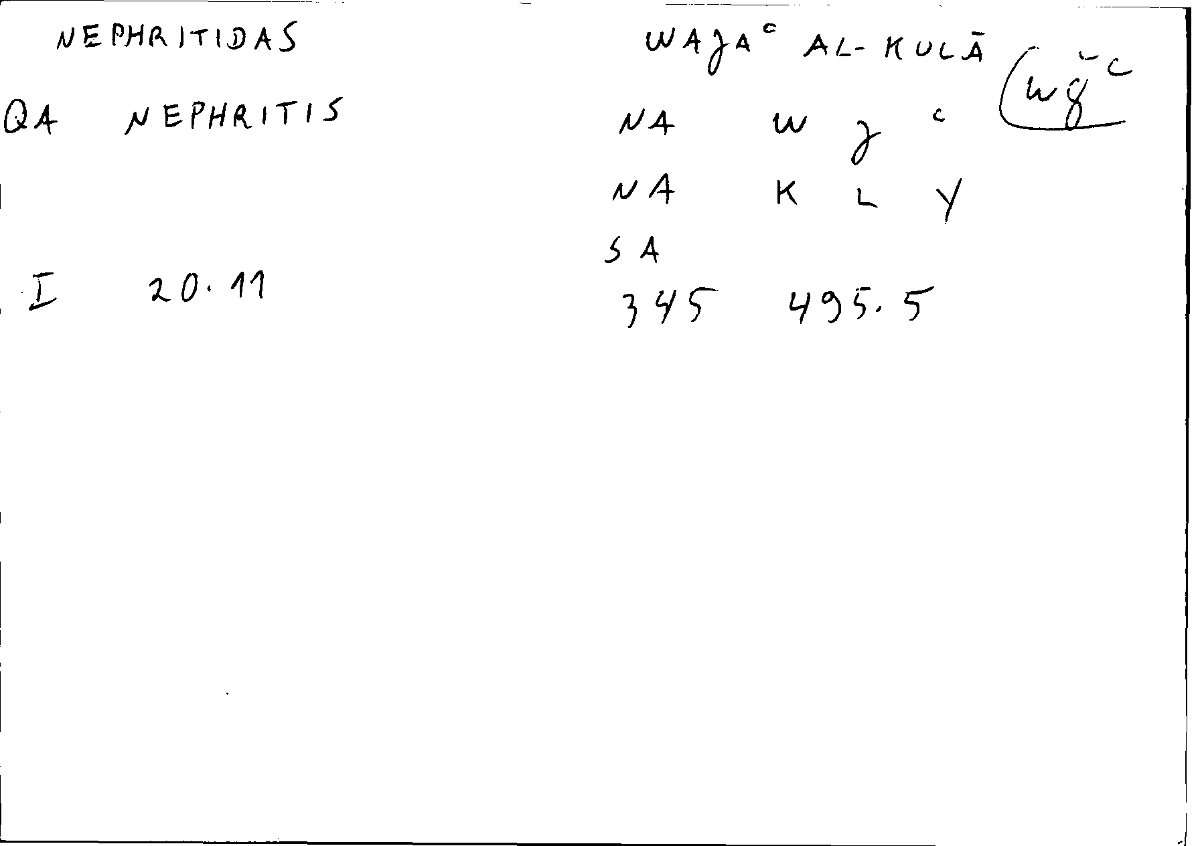 NEPHRITIDAS WAJAᶜ AL-KULĀ
QA NEPHRITIS NA W J ᶜ (wǧᶜ
NA K L Y
SA
I 20.11 345 495.5